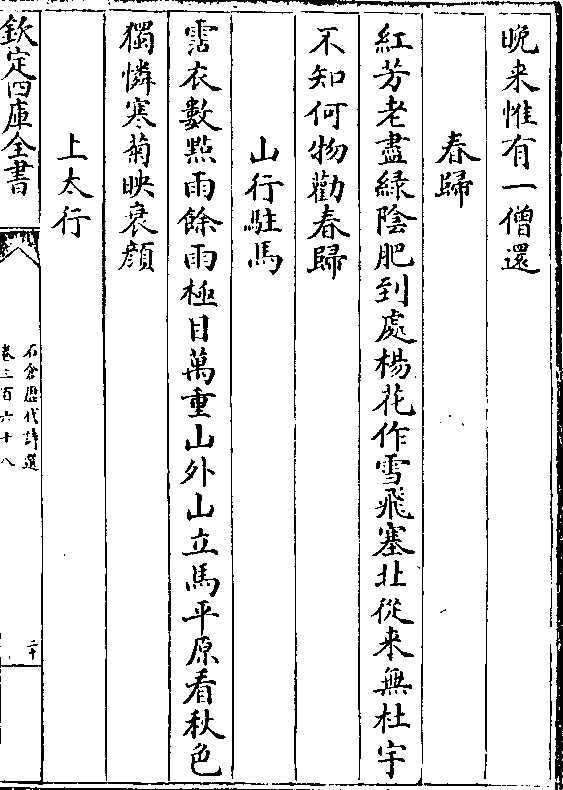 晚来惟有一僧還
春歸
紅芳老盡綠陰肥到處楊花作雪飛塞北從来無杜宇
不知何物勸春歸
山行駐馬
霑衣數點雨餘雨極目萬重山外山立馬平原看秋色
獨憐寒菊映衰顔
上太行
欽定四庫全書
石倉歷代詩選
卷三百六十八
二十